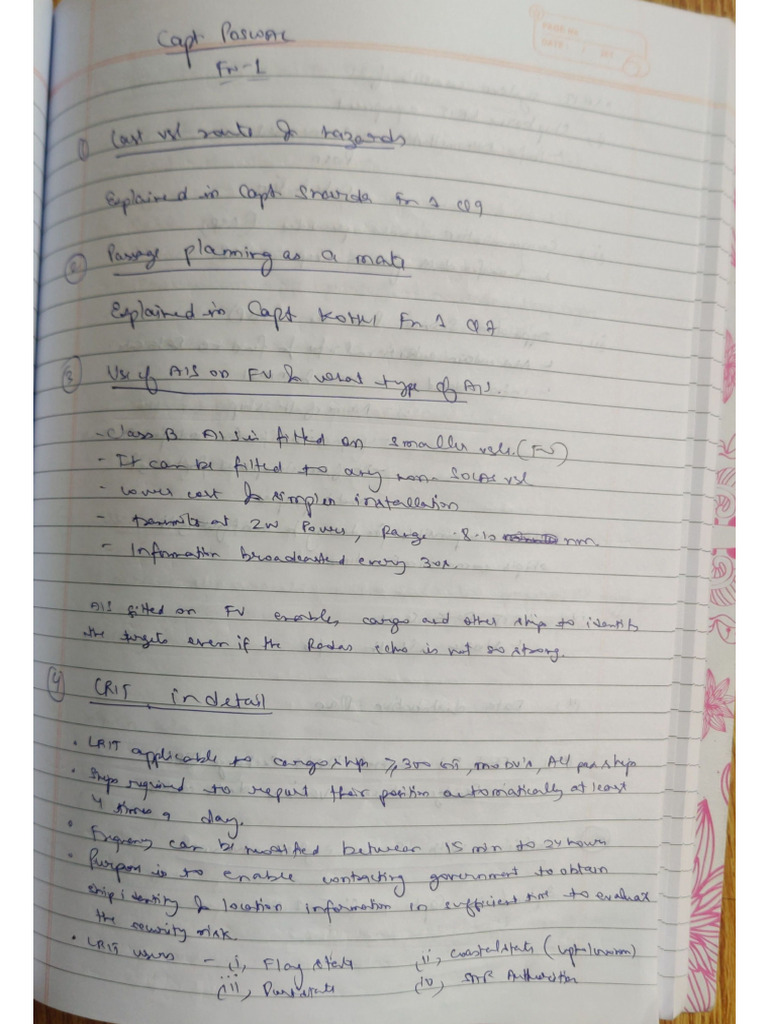 Capt Poswal
Fn-1
① Last vsl route & hazards
Explained in Capt Fn 1 Q9
② Passage planning as a mate
Explained in Capt Kohli Fn 1 Q7
③ Use of AIS on FV & what type of AIS.
- Class B AIS is fitted on smaller vsls. (FV)
- It can be fitted to any non-SOLAS vsl
- Lower cost & simpler installation
- Transmits at 2W Power, Range 8-10 nm.
- Information broadcasted every 30s.
AIS fitted on FV enables cargo and other ship to identify
the targets even if the Radar echo is not so strong.
④ LRIT in detail
• LRIT applicable to cargo ships ≥ 300 GT, MODU's, All pax ship
• Ships required to report their position automatically at least
4 times a day.
• Frequency can be modified between 15 min to 24 hours
• Purpose is to enable contracting government to obtain
ship identity & location information in sufficient time to evaluate
the security risk.
• LRIT users - (i) Flag state (ii) Coastal state (upto 1000nm)
(iii) Port state (iv) SAR Authorities